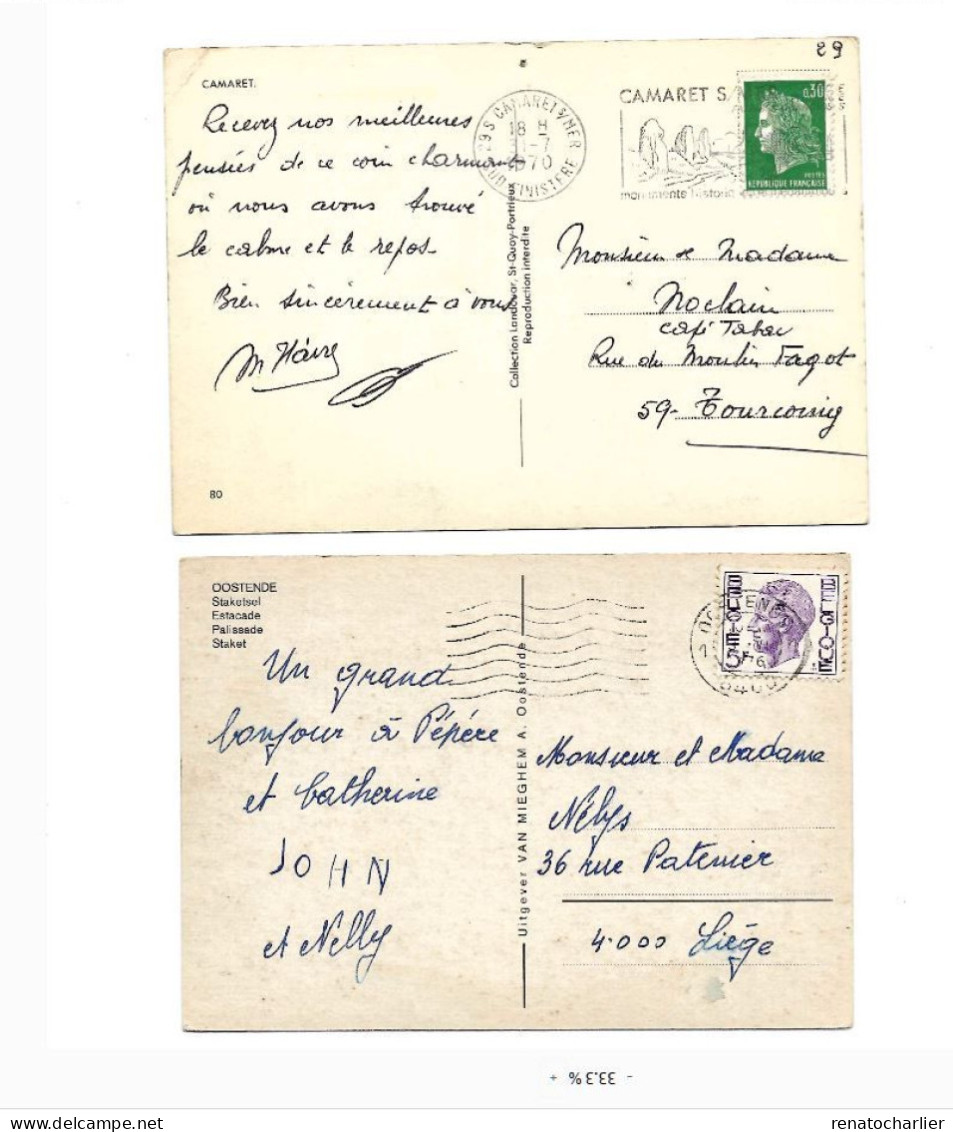 29
CAMARET.
Recevez nos meilleures
pensées de ce coin charmant
où nous avons trouvé
le calme et le repos.
Bien sincèrement à vous
80
29 S CAMARET S/MER
18 H
1970
SUD FINISTERE
CAMARET S/
monuments histori
0,30
POSTES
REPUBLIQUE FRANÇAISE
Collection Landouar, St-Quay-Portrieux
Reproduction interdite
Monsieur & Madame
Noclain
Café Tabac
Rue du Moulin Fagot
59- Tourcoing
OOSTENDE
Staketsel
Estacade
Palissade
Staket
Un grand
bonjour à Pépère
et Catherine
JOHN
et Nelly
Uitgever VAN MIEGHEM A. Oostende
BELGIE
5F
BELGIQUE
8400
Monsieur et Madame
Nélys
36 rue Patenier
4000 Liège
- 33.3% +
renatocharlier